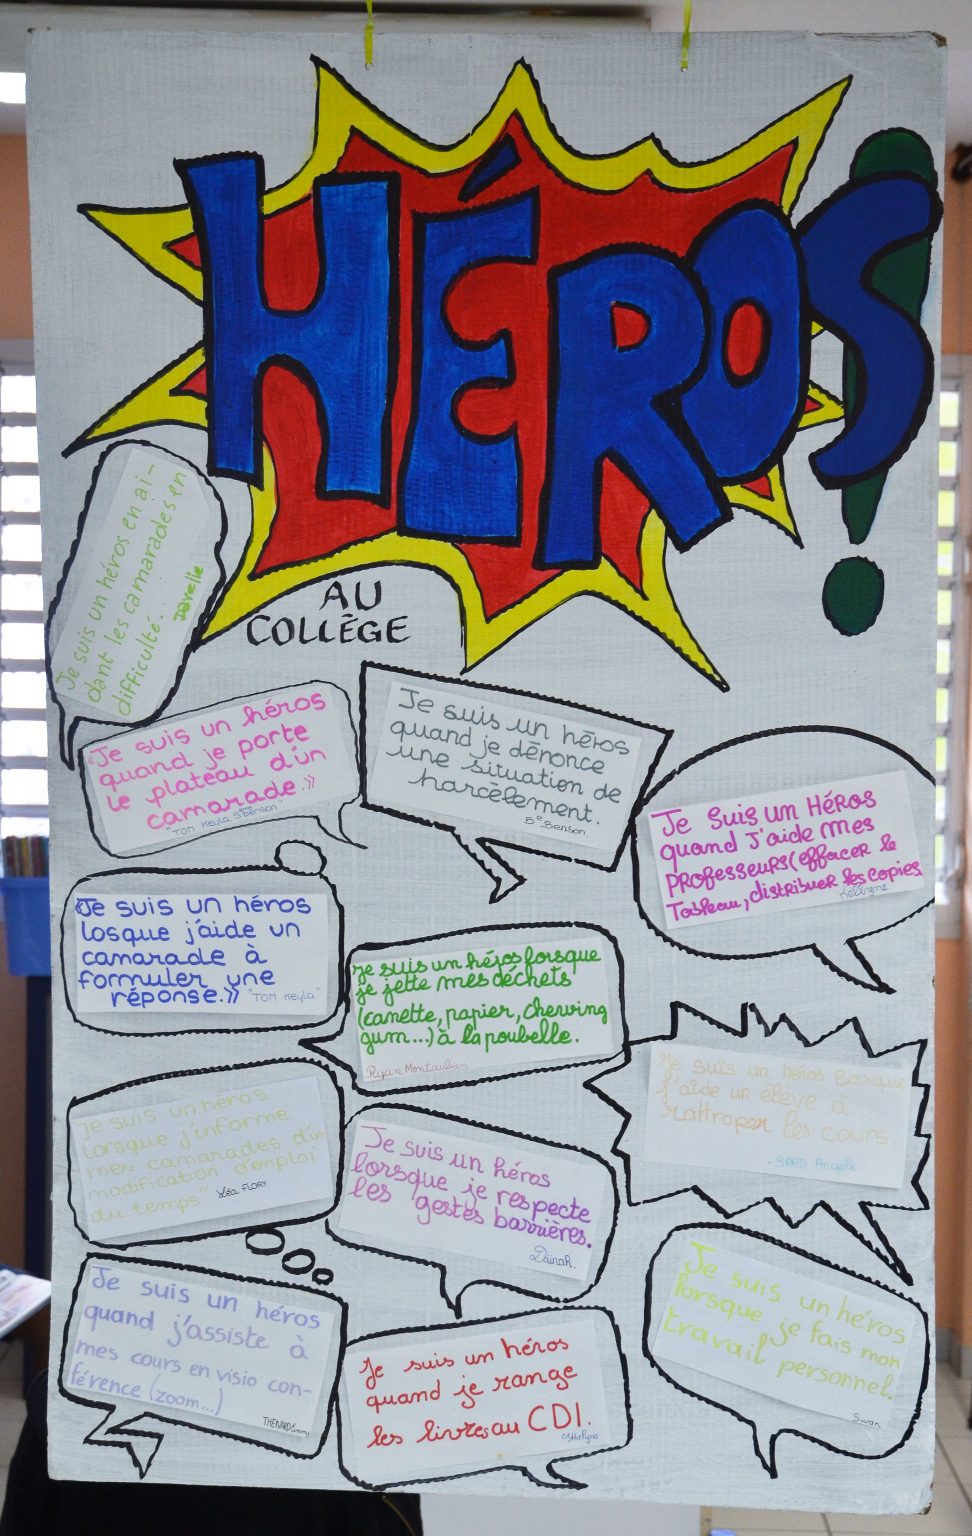 HÉROS!
AU
COLLÈGE
Je suis un héros en ai-
dant les camarades en
difficulté.
Darelle
"Je suis un héros
quand je porte
le plateau d'un
camarade.»
"TOM Keyla S Benson"
Je suis un héros
quand je dénonce
une situation de
harcèlement.
Be Benson
Je suis un Héros
quand J'aide mes
professeurs (effacer le
Tableau, distribuer les copies
«Je suis un héros
losque j'aide un
camarade à
formuler une
réponse.»
"TOM Keyla"
je suis un héros lorsque
je jette mes déchets
(canette, papier, chewing
gum...) à la poubelle.
Ryan Montauban
Je suis un héros losque
j'aide un élève à
rattraper les cours.
- SAAD Angèle
Je suis un héros
lorsque j'informe
mes camarades d'un
modification d'emploi
du temps"
Léa FLORY
Je suis un héros
lorsque je respecte
les gestes barrières.
Daïnah.
Je suis un héros
lorsque je fais mon
travail personnel.
Swan
Je suis un héros
quand j'assiste à
mes cours en visio con-
férence (zoom...)
Je suis un héros
quand je range
les livres au CDI.